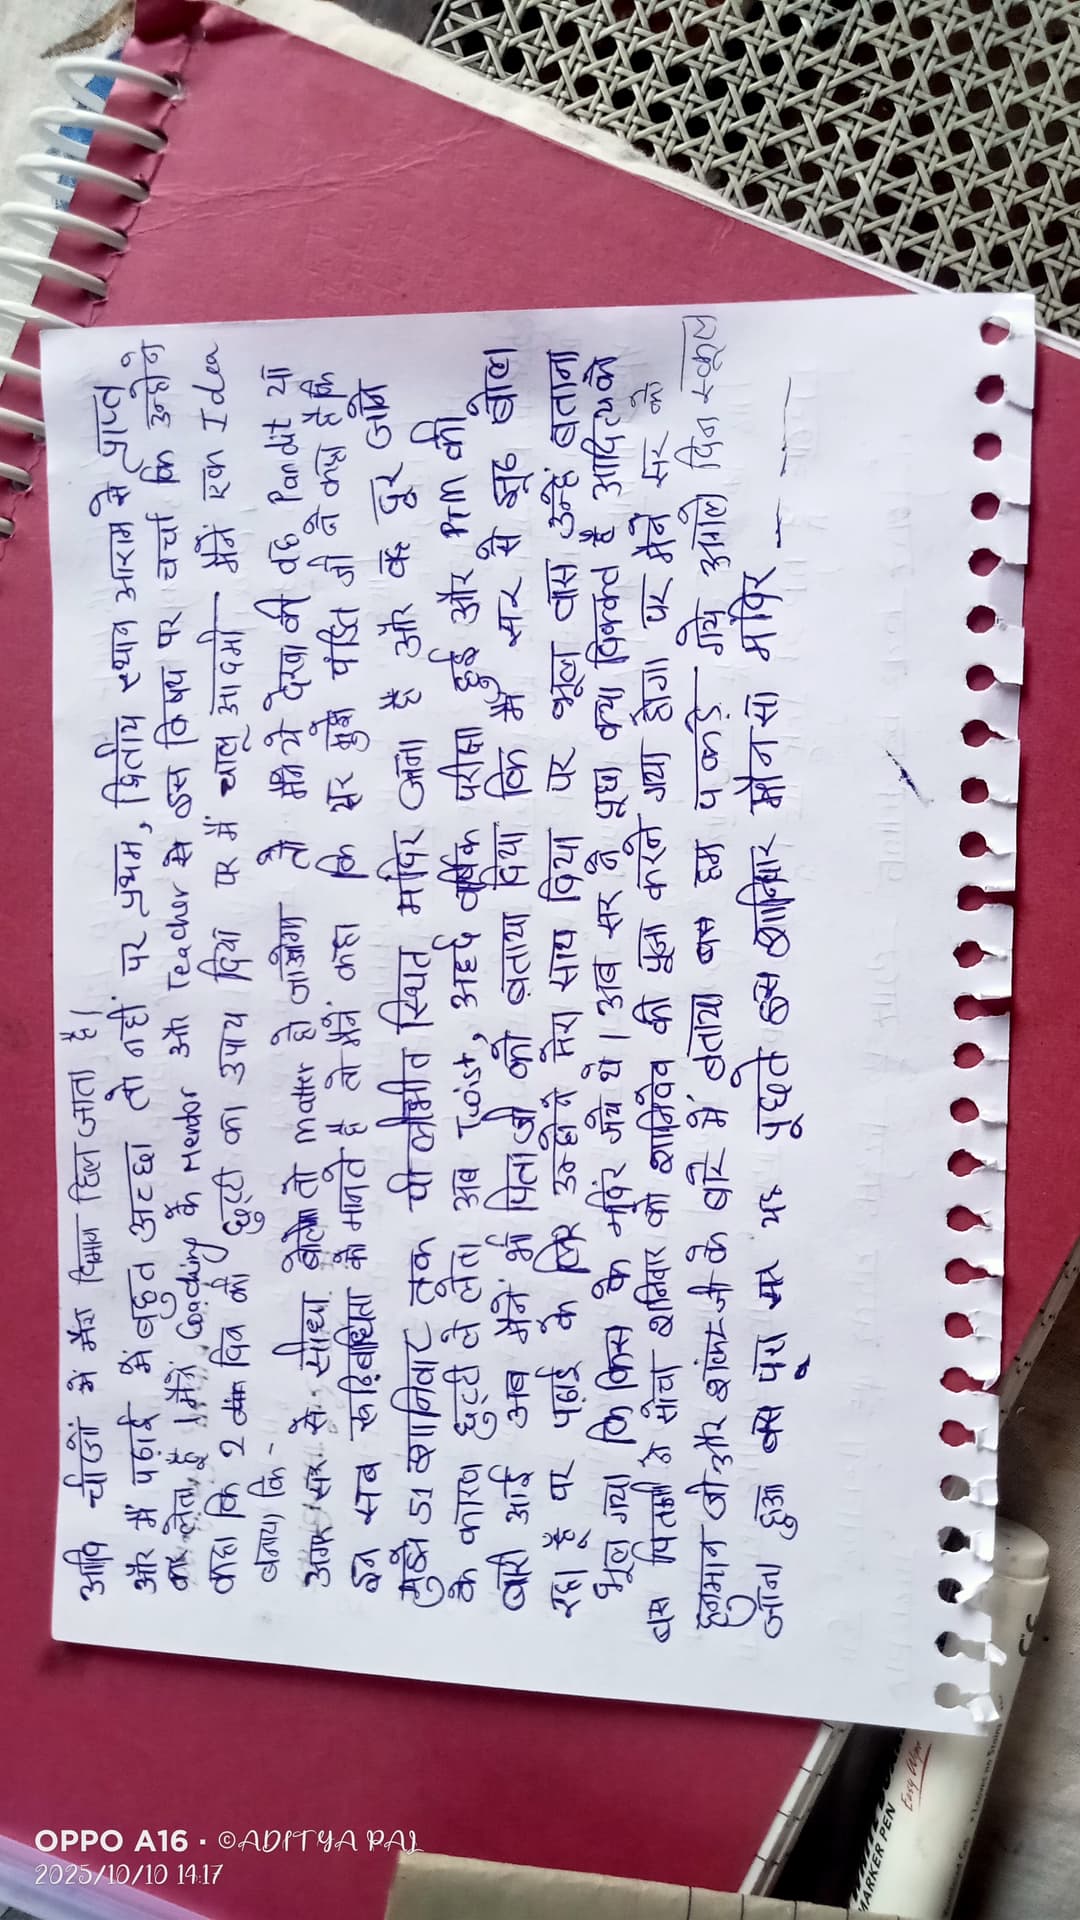 आदि चीजों में मेरा दिमाग हिल जाता है।
और मैं पढ़ाई में बहुत अच्छा तो नहीं पर प्रथम, द्वितीय स्थान आराम से प्राप्त
कर लेता हूँ। मैंने Coaching के Mentor और Teacher से इस विषय पर चर्चा कि उन्होने
कहा कि 2 दिन की छुट्टी का उपाय दिया पर में चालू आदमी मैंने एक Idea
बनाया कि -
अगर सर से सीधा बोला तो matter हो जाओगा तो मैंने ये देखा की वह Pandit या
इन सब रूढ़िवादिता को मानते है तो मैंने कहा कि सर मुझे पंडित जी ने कहा है कि
मुझे 51 शनिवार तक पीलीभीत स्थित मंदिर जाना है और वह दूर जाने
के कारण छुट्टी ले लेता अब Twist, अर्द्ध वार्षिक परीक्षा हुई और PTM की
बारी आई अब मैंने भी पिताजी को बताया दिया कि मैं सर से झूठ बोल
रहा हूँ पर पढ़ाई के लिए उन्होने मेरा साथ दिया पर भूल बस उन्हें बताना
भूल गया कि किस के मंदिर गये थे। अब सर ने पूछा क्या दिक्कत है आदित्य को
बस पिताजी ने सोचा शनिवार को शनिदेव की पूजा करने गया होगा पर मैंने सर को
हनुमान जी और शंकर जी के बारे में बताया बस हम पकड़े गये अगले दिन स्कूल
जाना हुआ बस पूरा सर यह पूछते इस शनिवार कौन सा मंदिर - - -
OPPO A16 · ©ADITYA PAL
2025/10/10 14:17
MARKER PEN
Easy Wipe